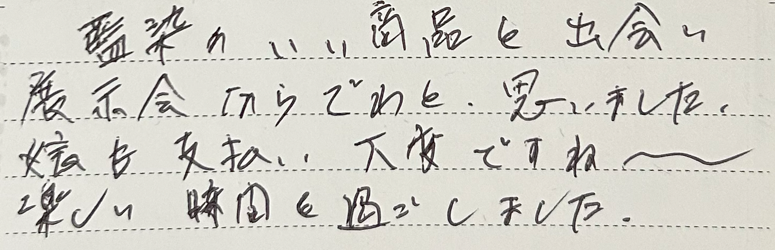 藍染のいい商品と出会い
展示会ならでわと、思いました。
嫁も支払い大変ですね〜
楽しい時間を過ごしました。